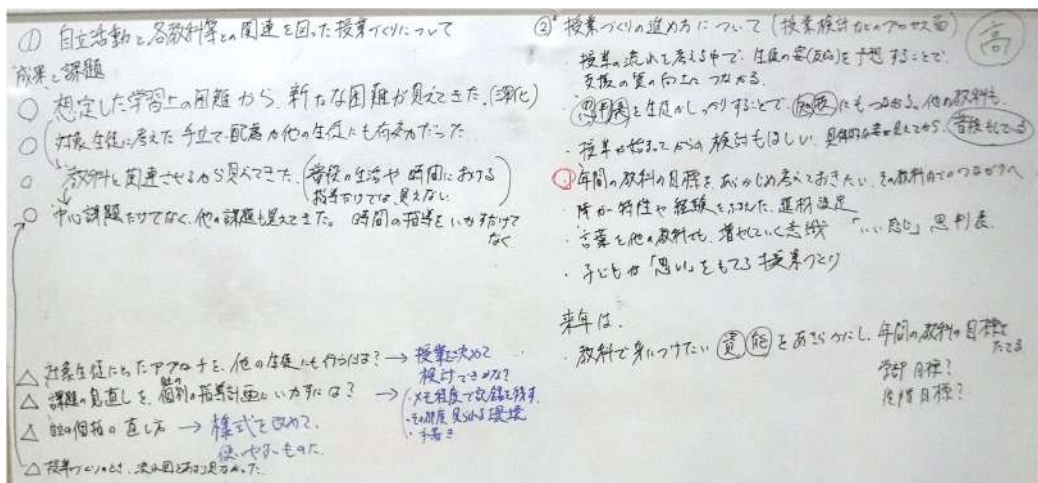 ① 自立活動と各教科等との関連を図った授業づくりについて
成果と課題
○ 想定した学習上の困難から、新たな困難が見えてきた。(深化)
○ 対象生徒に考えた手立て、配慮が他の生徒にも有効だった
○ 教科と関連させるから見えてきた。(普段の生活や時間における
指導だけでは、見えない)
○ 中心課題だけでなく、他の課題も見えてきた。 時間の指導をいかすだけで
なく
△ 対象生徒にとったアプローチを、他の生徒にも行うには? → 授業を決めて
検討できるかな?
△ 課題の見直しを、個別の指導計画にいかすには? → ・メモ程度で記録を残す。
・その都度見られる環境
・手書き
△ 個指の直し方 → 様式を改めて、
使いやすいものに
△ 授業づくりのとき、流れ図をあまり見なかった。
② 授業づくりの進め方について (授業検討などのプロセス面)
高
・授業の流れを考える中で、生徒の姿(反応)を予想することで、
支援の質の向上につながる。
・思判表を生徒がしっかりすることで にもつながる。他の教科も。
・授業が始まってからの検討もほしい。具体的な姿が見えてから。普段もしている
・年間の教科の目標を、あらかじめ考えておきたい。その教科内でのつながりへ
・障がい特性や経験をふまえた、題材設定
・言葉を他の教科でも、増やしていく意識 「いい感じ」 思判表。
・子どもが「思い」をもてる授業づくり
来年は、
・教科で身につけたい 資 能 をあきらかにし、年間の教科の目標を
たてる
学部目標?
段階目標?